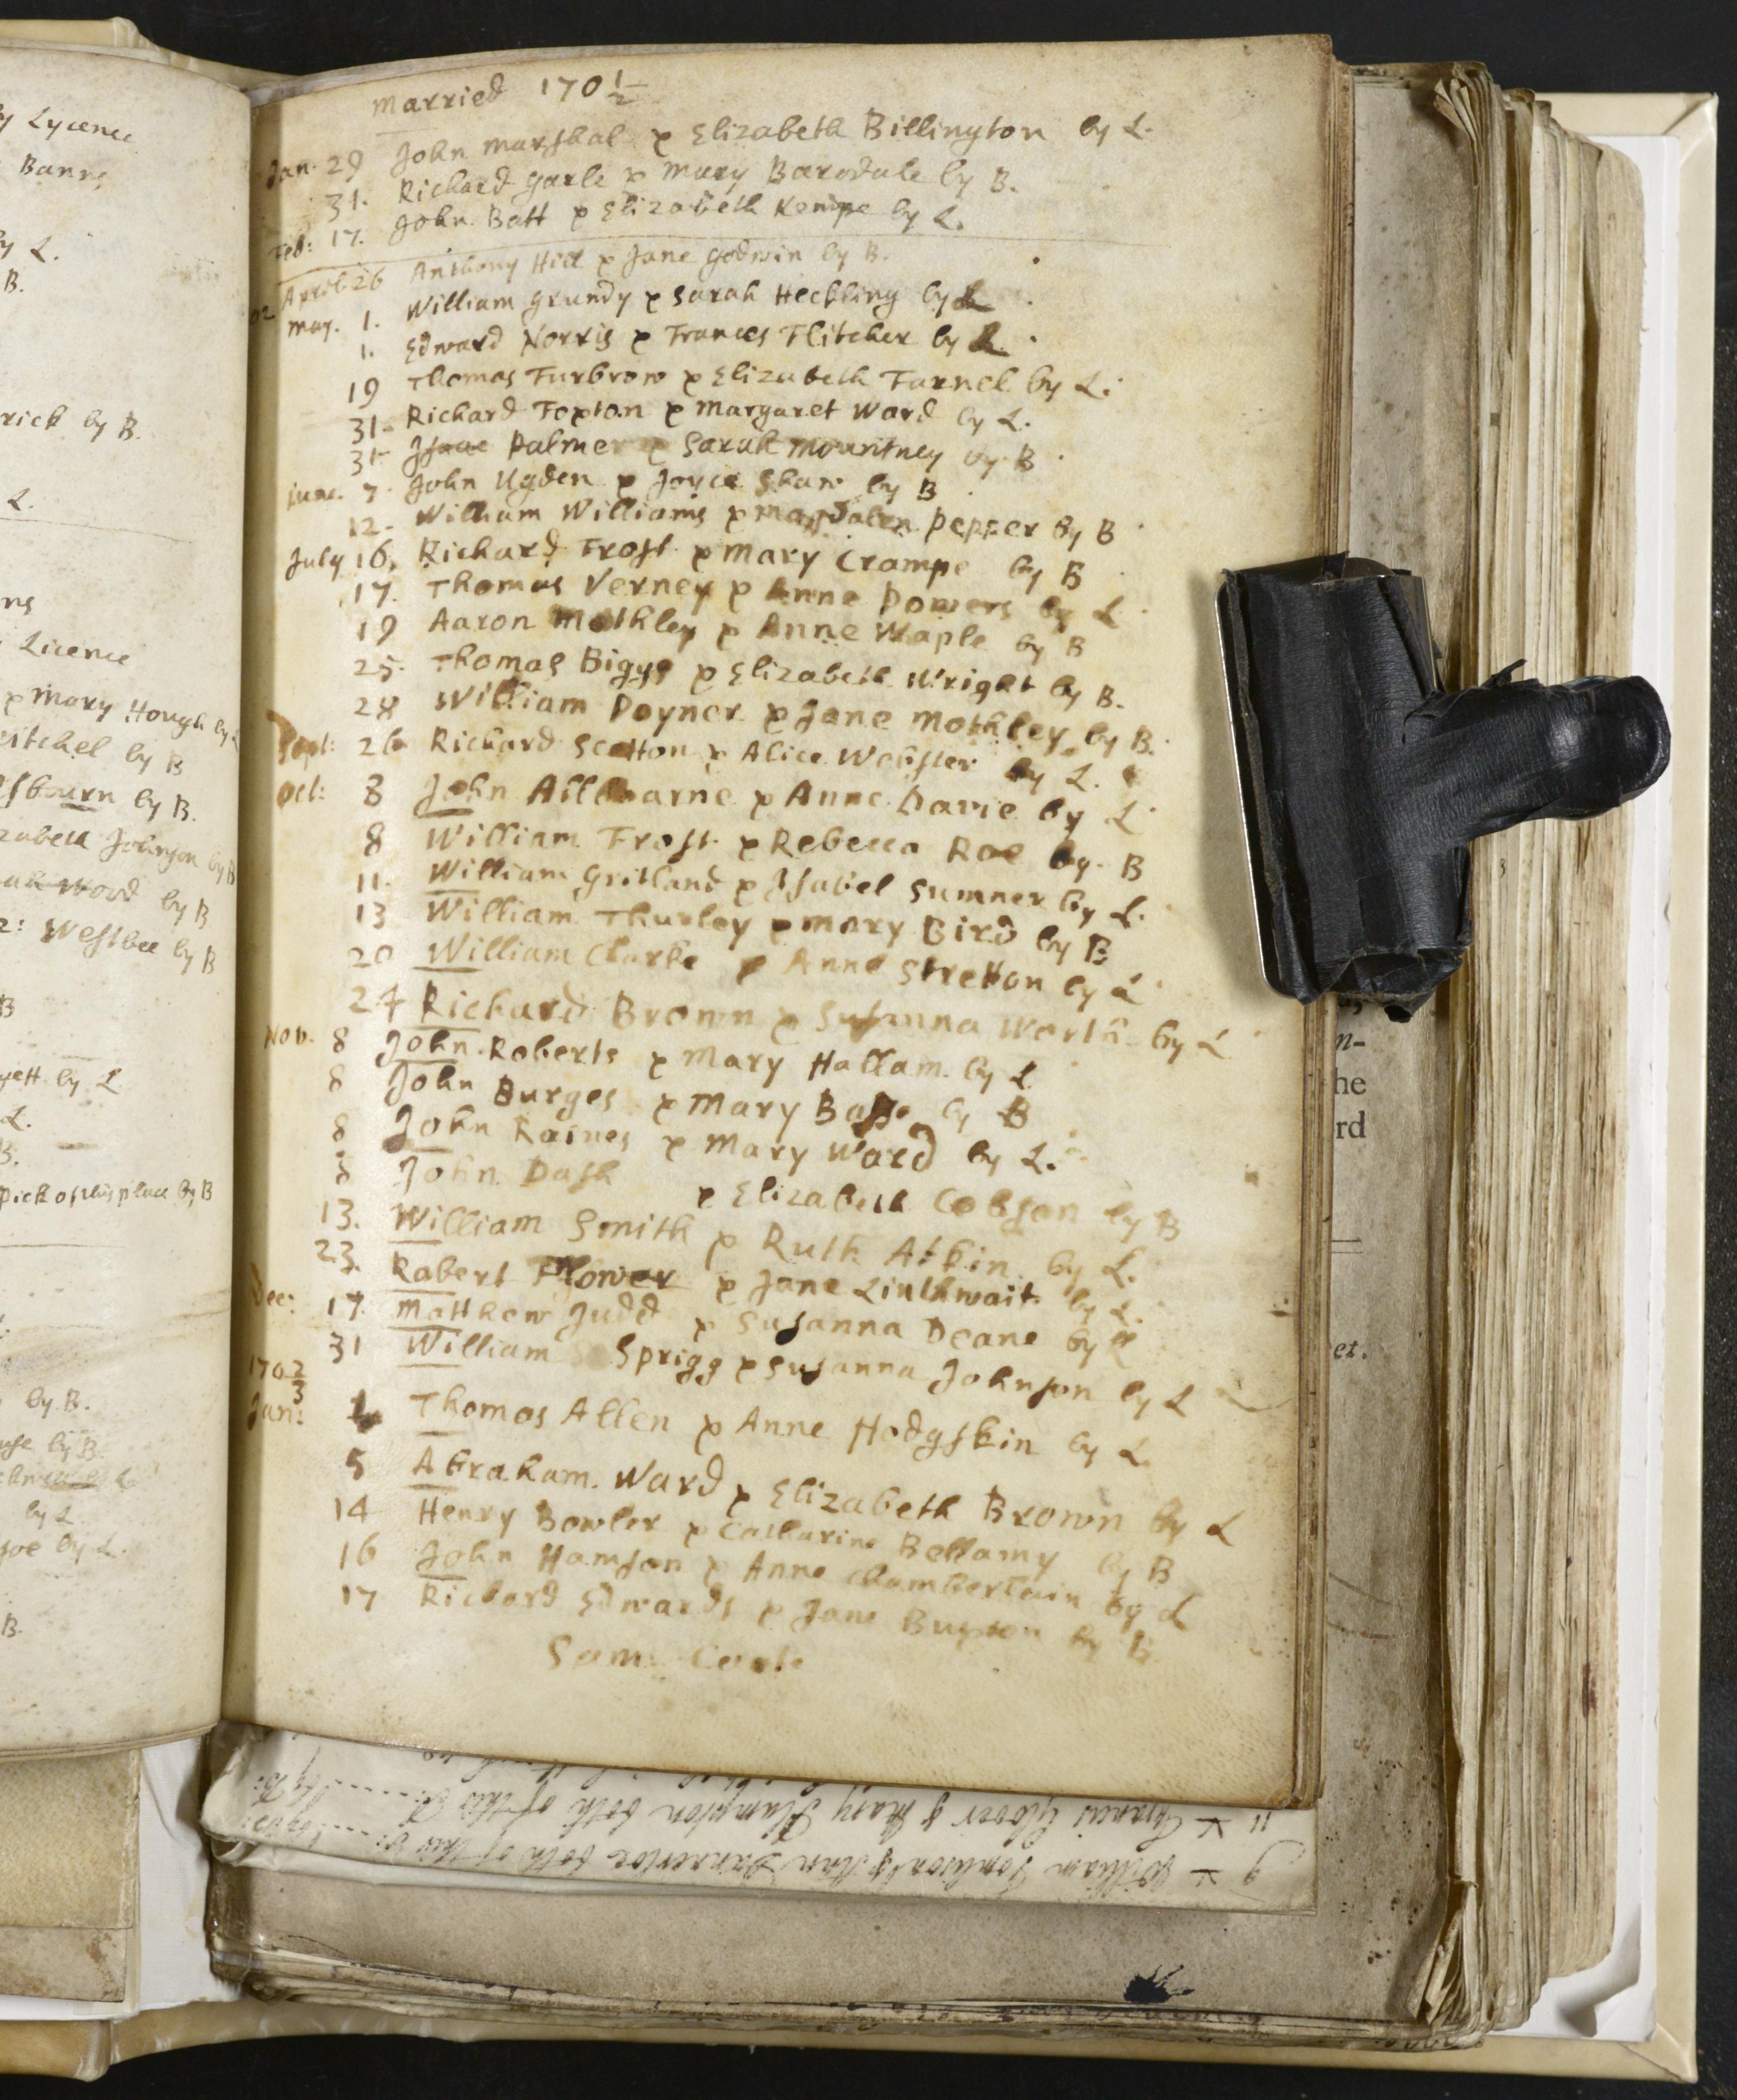 y Lycence
Banns
y L.
B.
rick by B.
L.
ns
Licence
& Mary Hough by
itchel by B
sbourn by B.
zabeth Johnson by B
ah Wood by B
2: Westbee by B
B
yett by L
L.
B.
Pick of this place by B
by B.
by B.
by L
joe by L.
B.
Married 170½
Jan. 29 John Marshal & Elizabeth Billington by L.
31. Richard Garle & Mary Barodale by B.
Feb: 17. John Batt & Elizabeth Kempe by L.
April 26 Anthony Hill & Jane Godwin by B.
02 May. 1. William Grundy & Sarah Heckling by L
1. Edward Norris & Frances Flitcher by L.
19 Thomas Furbrow & Elizabeth Farnel by L:
31. Richard Foxton & Margaret Ward by L.
31 Isaac Palmer & Sarah Mountney by B
June. 7. John Ugden & Joyce Shaw by B
12. William Williams & Magdalen Pepper by B
July 16. Richard Frost & Mary Crampe by B
17. Thomas Verney & Anne Powers by L
19 Aaron Mothley & Anne Waple by B
25. Thomas Biggs & Elizabeth Wright by B.
28 William Poyner & Jane Mothley by B.
Sept: 26 Richard Scotton & Alice Webster by L.
Oct: 8 John Ailbourne & Anne Davie by L
8 William Frost & Rebecca Roe by B
11. William Gritland & Isabel Sumner by L.
13 William Thurley & Mary Bird by B
20 William Clarke & Anne Stretton by L
24 Richard Brown & Susanna Worth by L
Nov. 8 John Roberts & Mary Hallam by L
8 John Burges & Mary by B
8 John Raines & Mary Ward by L.
8 John Dash & Elizabeth Cobson by B
13. William Smith & Ruth Atkin by L.
23. Robert Flower & Jane Linthwait by L.
Dec: 17. Matthew Judd & Susanna Deane by L
31 William Sprigg & Susanna Johnson by L
1702/3
Jan: 1 Thomas Allen & Anne Hodgskin by L.
5 Abraham Ward & Elizabeth Brown by L
14 Henry Bowler & Catharine Bellamy by B
16 John Hamson & Anne Chamberlain by L
17 Richard Edwards & Jane Buxton by B
Sam:
n-
he
rd
et.
11 Francis Glover & Mary Hampton both of this
9 William both of this